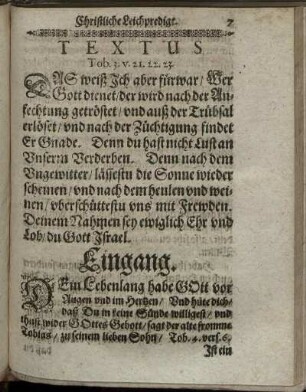 Christliche Leichpredigt. 7
TEXTUS
Tob. 3. v. 21. 22. 23.
DAS weiß Jch aber fürwar/ Wer
Gott dienet/ der wird nach der An-
fechtung getröstet/ vnd auß der Trübsal
erlöset/ vnd nach der Züchtigung findet
Er Gnade. Denn du hast nicht Lust an
Vnserm Verderben. Denn nach dem
Vngewitter/ lässestu die Sonne wieder
scheinen/ vnd nach dem heulen vnd wei-
nen/ vberschüttestu vns mit Frewden.
Deinem Nahmen sey ewiglich Ehr vnd
Lob/ du Gott Jsrael.
Eingang.
DEin Lebenlang habe GOtt vor
Augen vnd im Hertzen/ Vnd hüte dich/
daß Du in keine Sünde willigest/ vnd
thust wider GOttes Gebott/ sagt der alte fromme
Tobias/ zu seinem lieben Sohn/ Tob. 4. vers. 6.
Jst ein